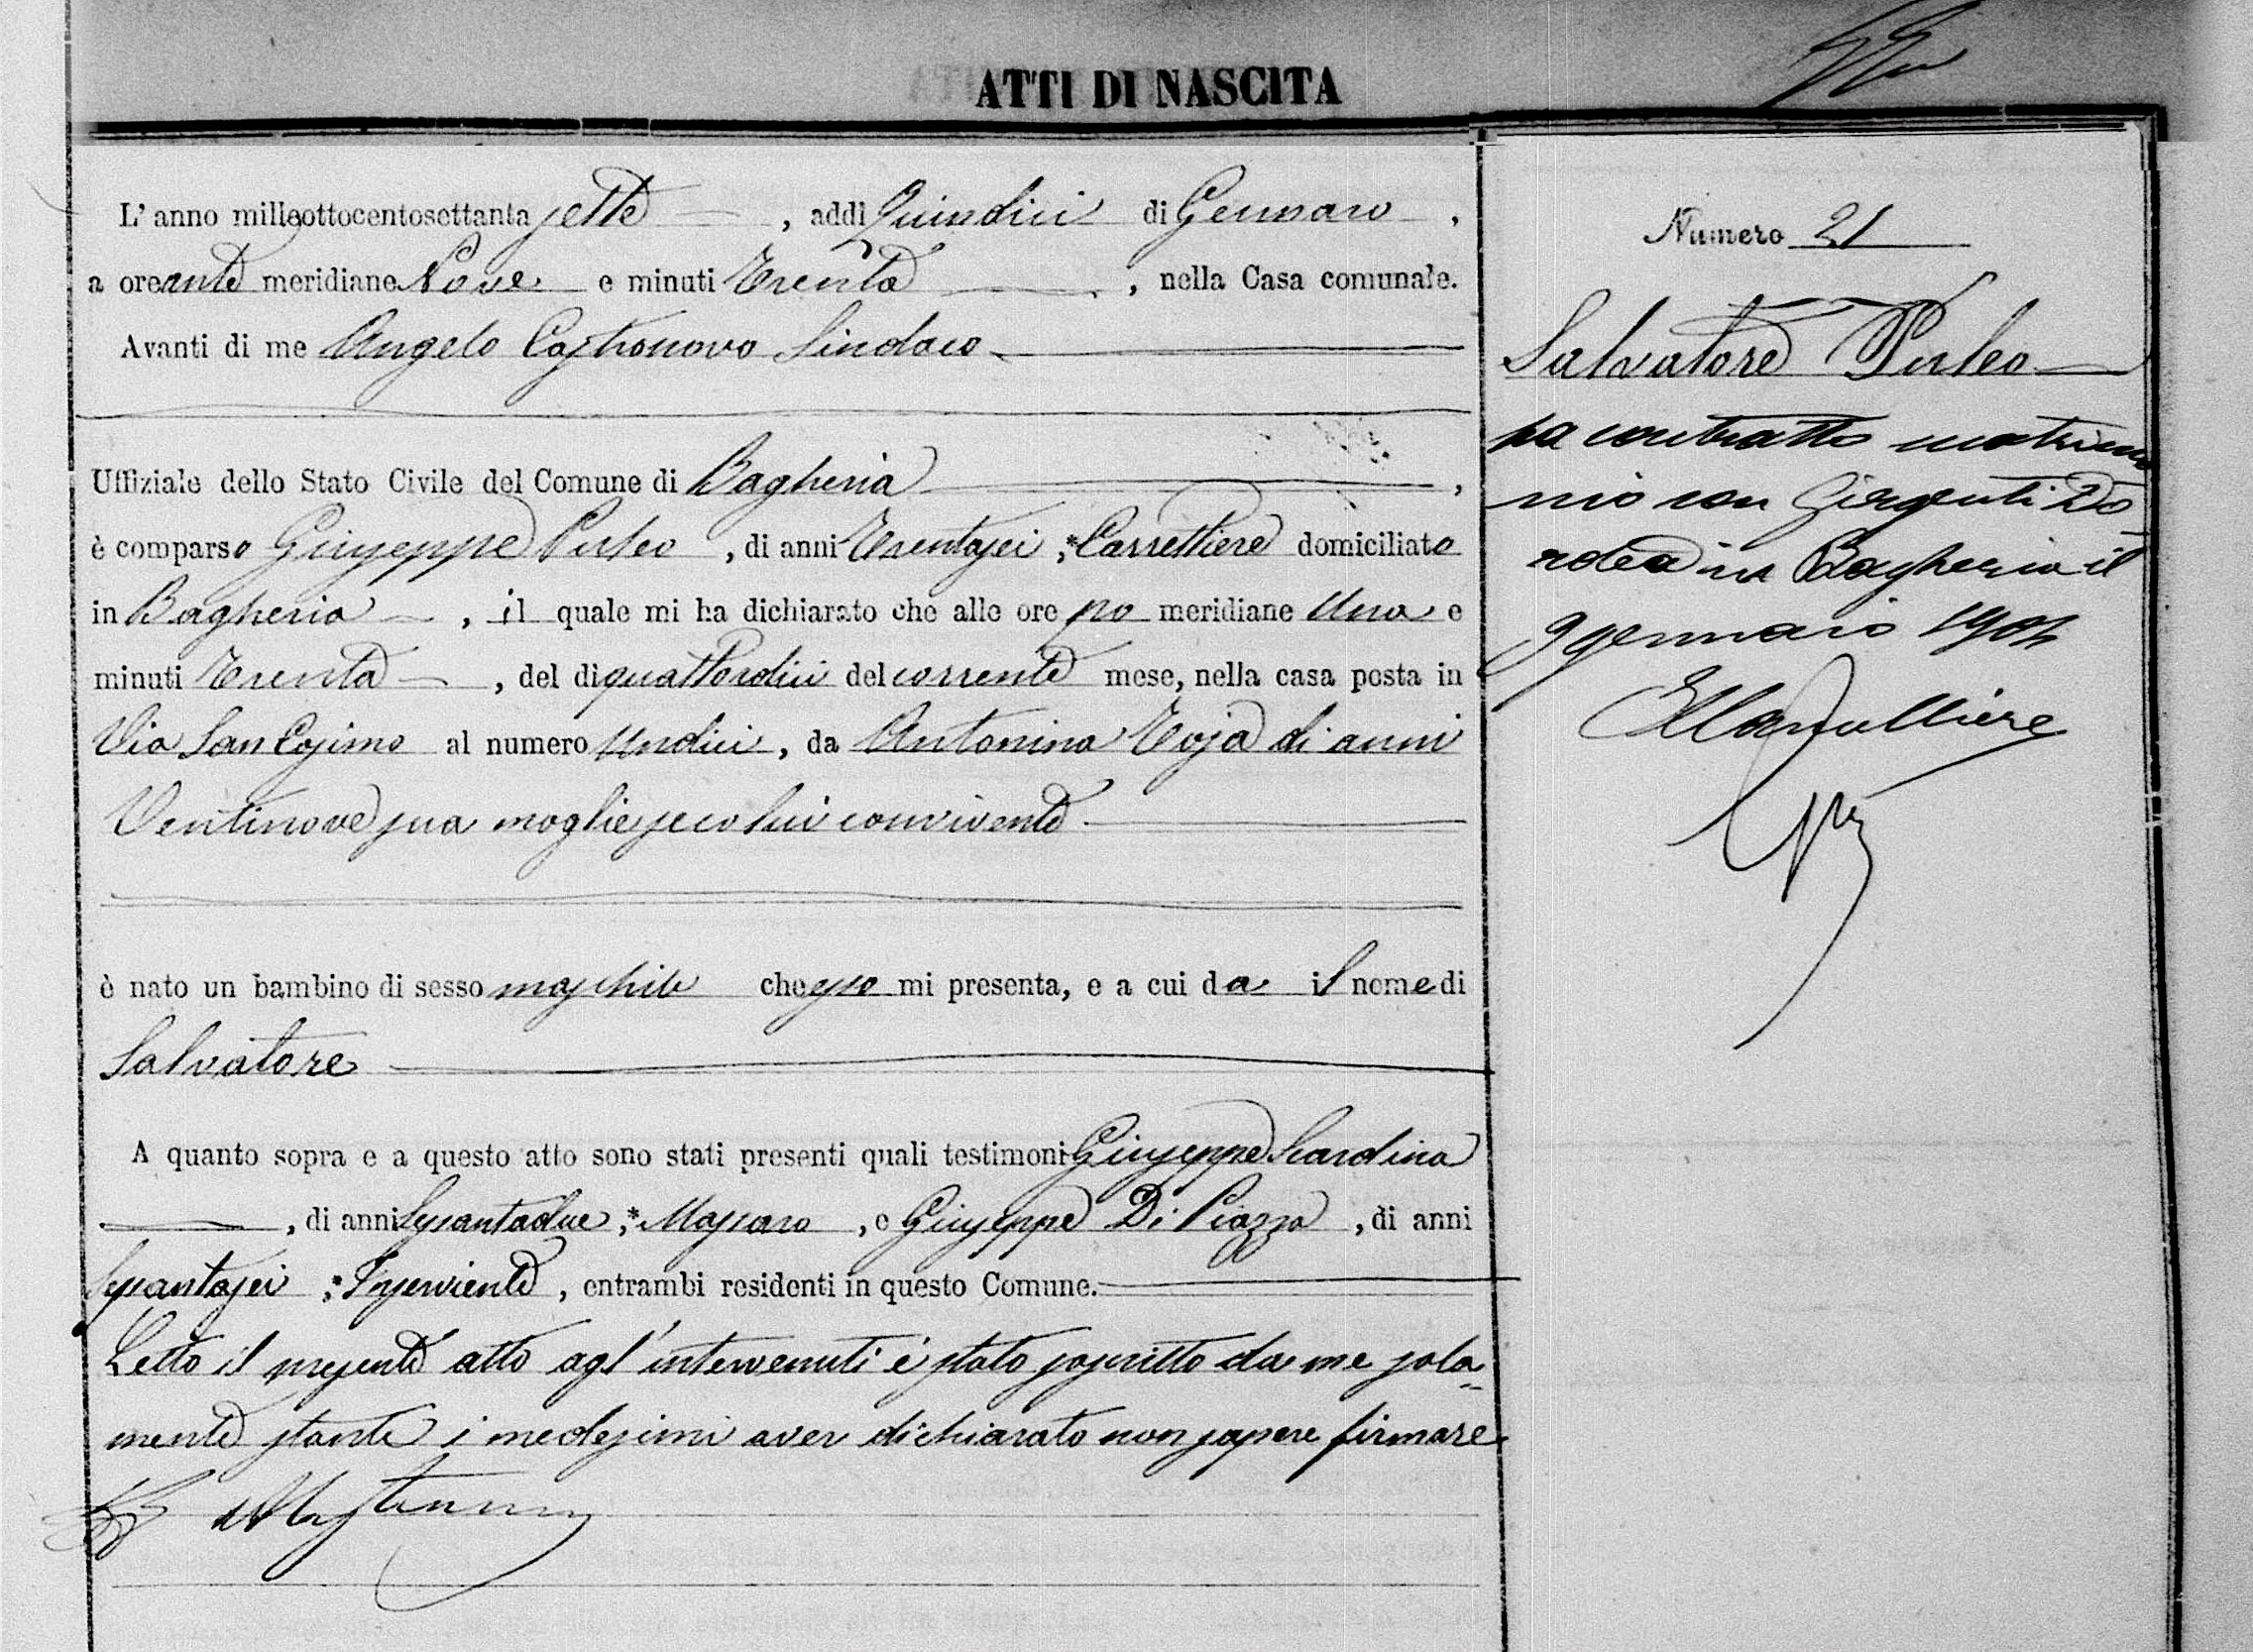 ATTI DI NASCITA
L'anno milleottocentosettanta sette, addì Quindici di Gennaro,
a ore ante meridiane Nove e minuti Trenta, nella Casa comunale.
Avanti di me Angelo Castronovo Sindaco
Uffiziale dello Stato Civile del Comune di Bagheria,
è comparso Giuseppe Puleo, di anni Trentasei, Carrettiere domiciliato
in Bagheria, il quale mi ha dichiarato che alle ore po meridiane Una e
minuti Trenta, del dì quattordici del corrente mese, nella casa posta in
Via San Cosimo al numero Undici, da Antonina Toja di anni
Ventinove sua moglie seco lui convivente
è nato un bambino di sesso maschile che esso mi presenta, e a cui da il nome di
Salvatore
A quanto sopra e a questo atto sono stati presenti quali testimoni Giuseppe Scardina
, di anni Sessantadue, Massaro, e Giuseppe Di Piazza, di anni
Sessantasei, Inserviente, entrambi residenti in questo Comune.
Letto il presente atto agl'intervenuti è stato soscritto da me sola-
mente stante i medesimi aver dichiarato non sapere firmare
Numero 21
Salvatore Puleo
ha contratto matrimo
nio con Girgenti Do-
rotea in Bagheria il
9 gennaio 1904